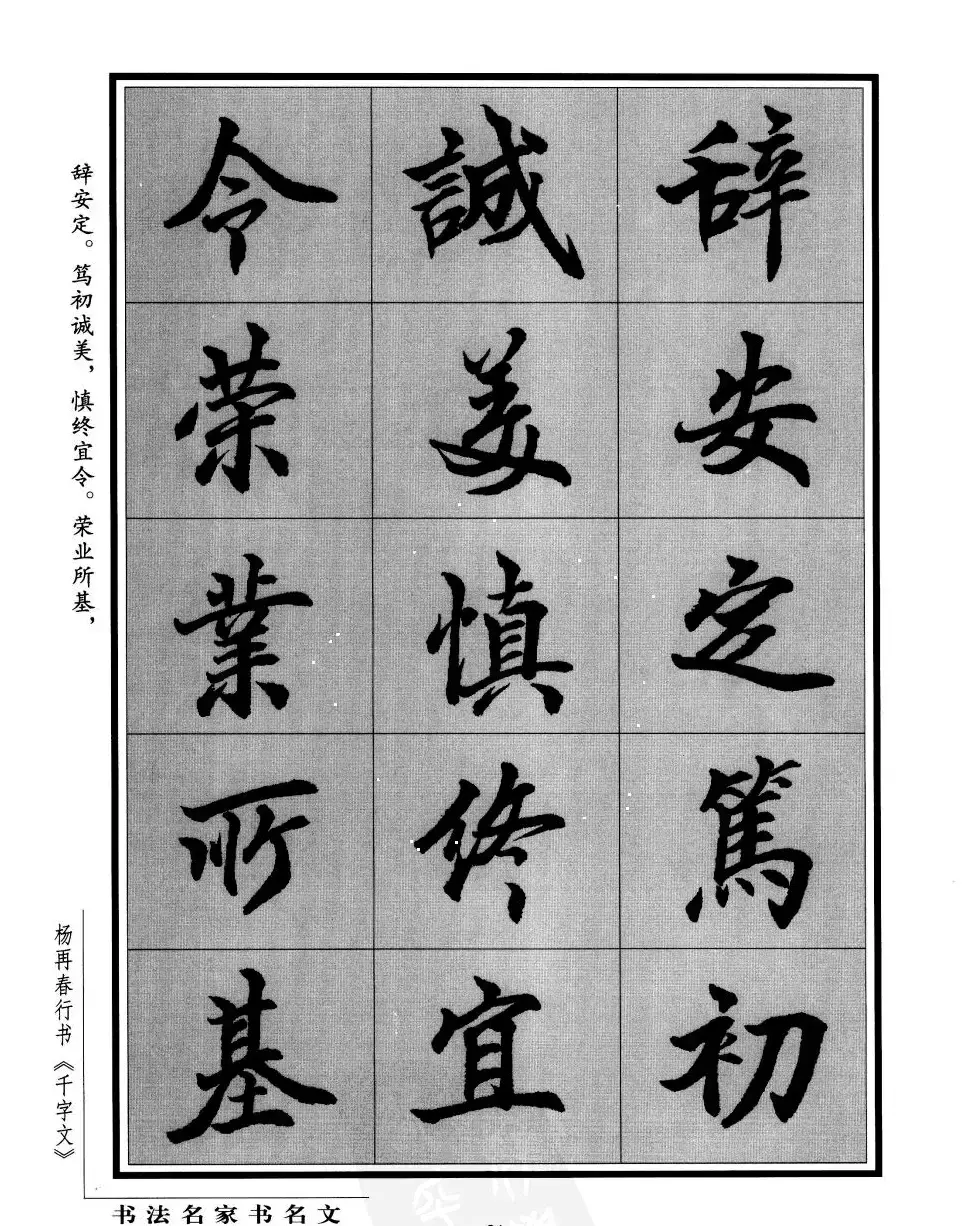 辞安定篤初
誠美慎终宜
令荣業所基
辞安定。笃初诚美，慎终宜令。荣业所基，
杨再春行书《千字文》
书法名家书名文